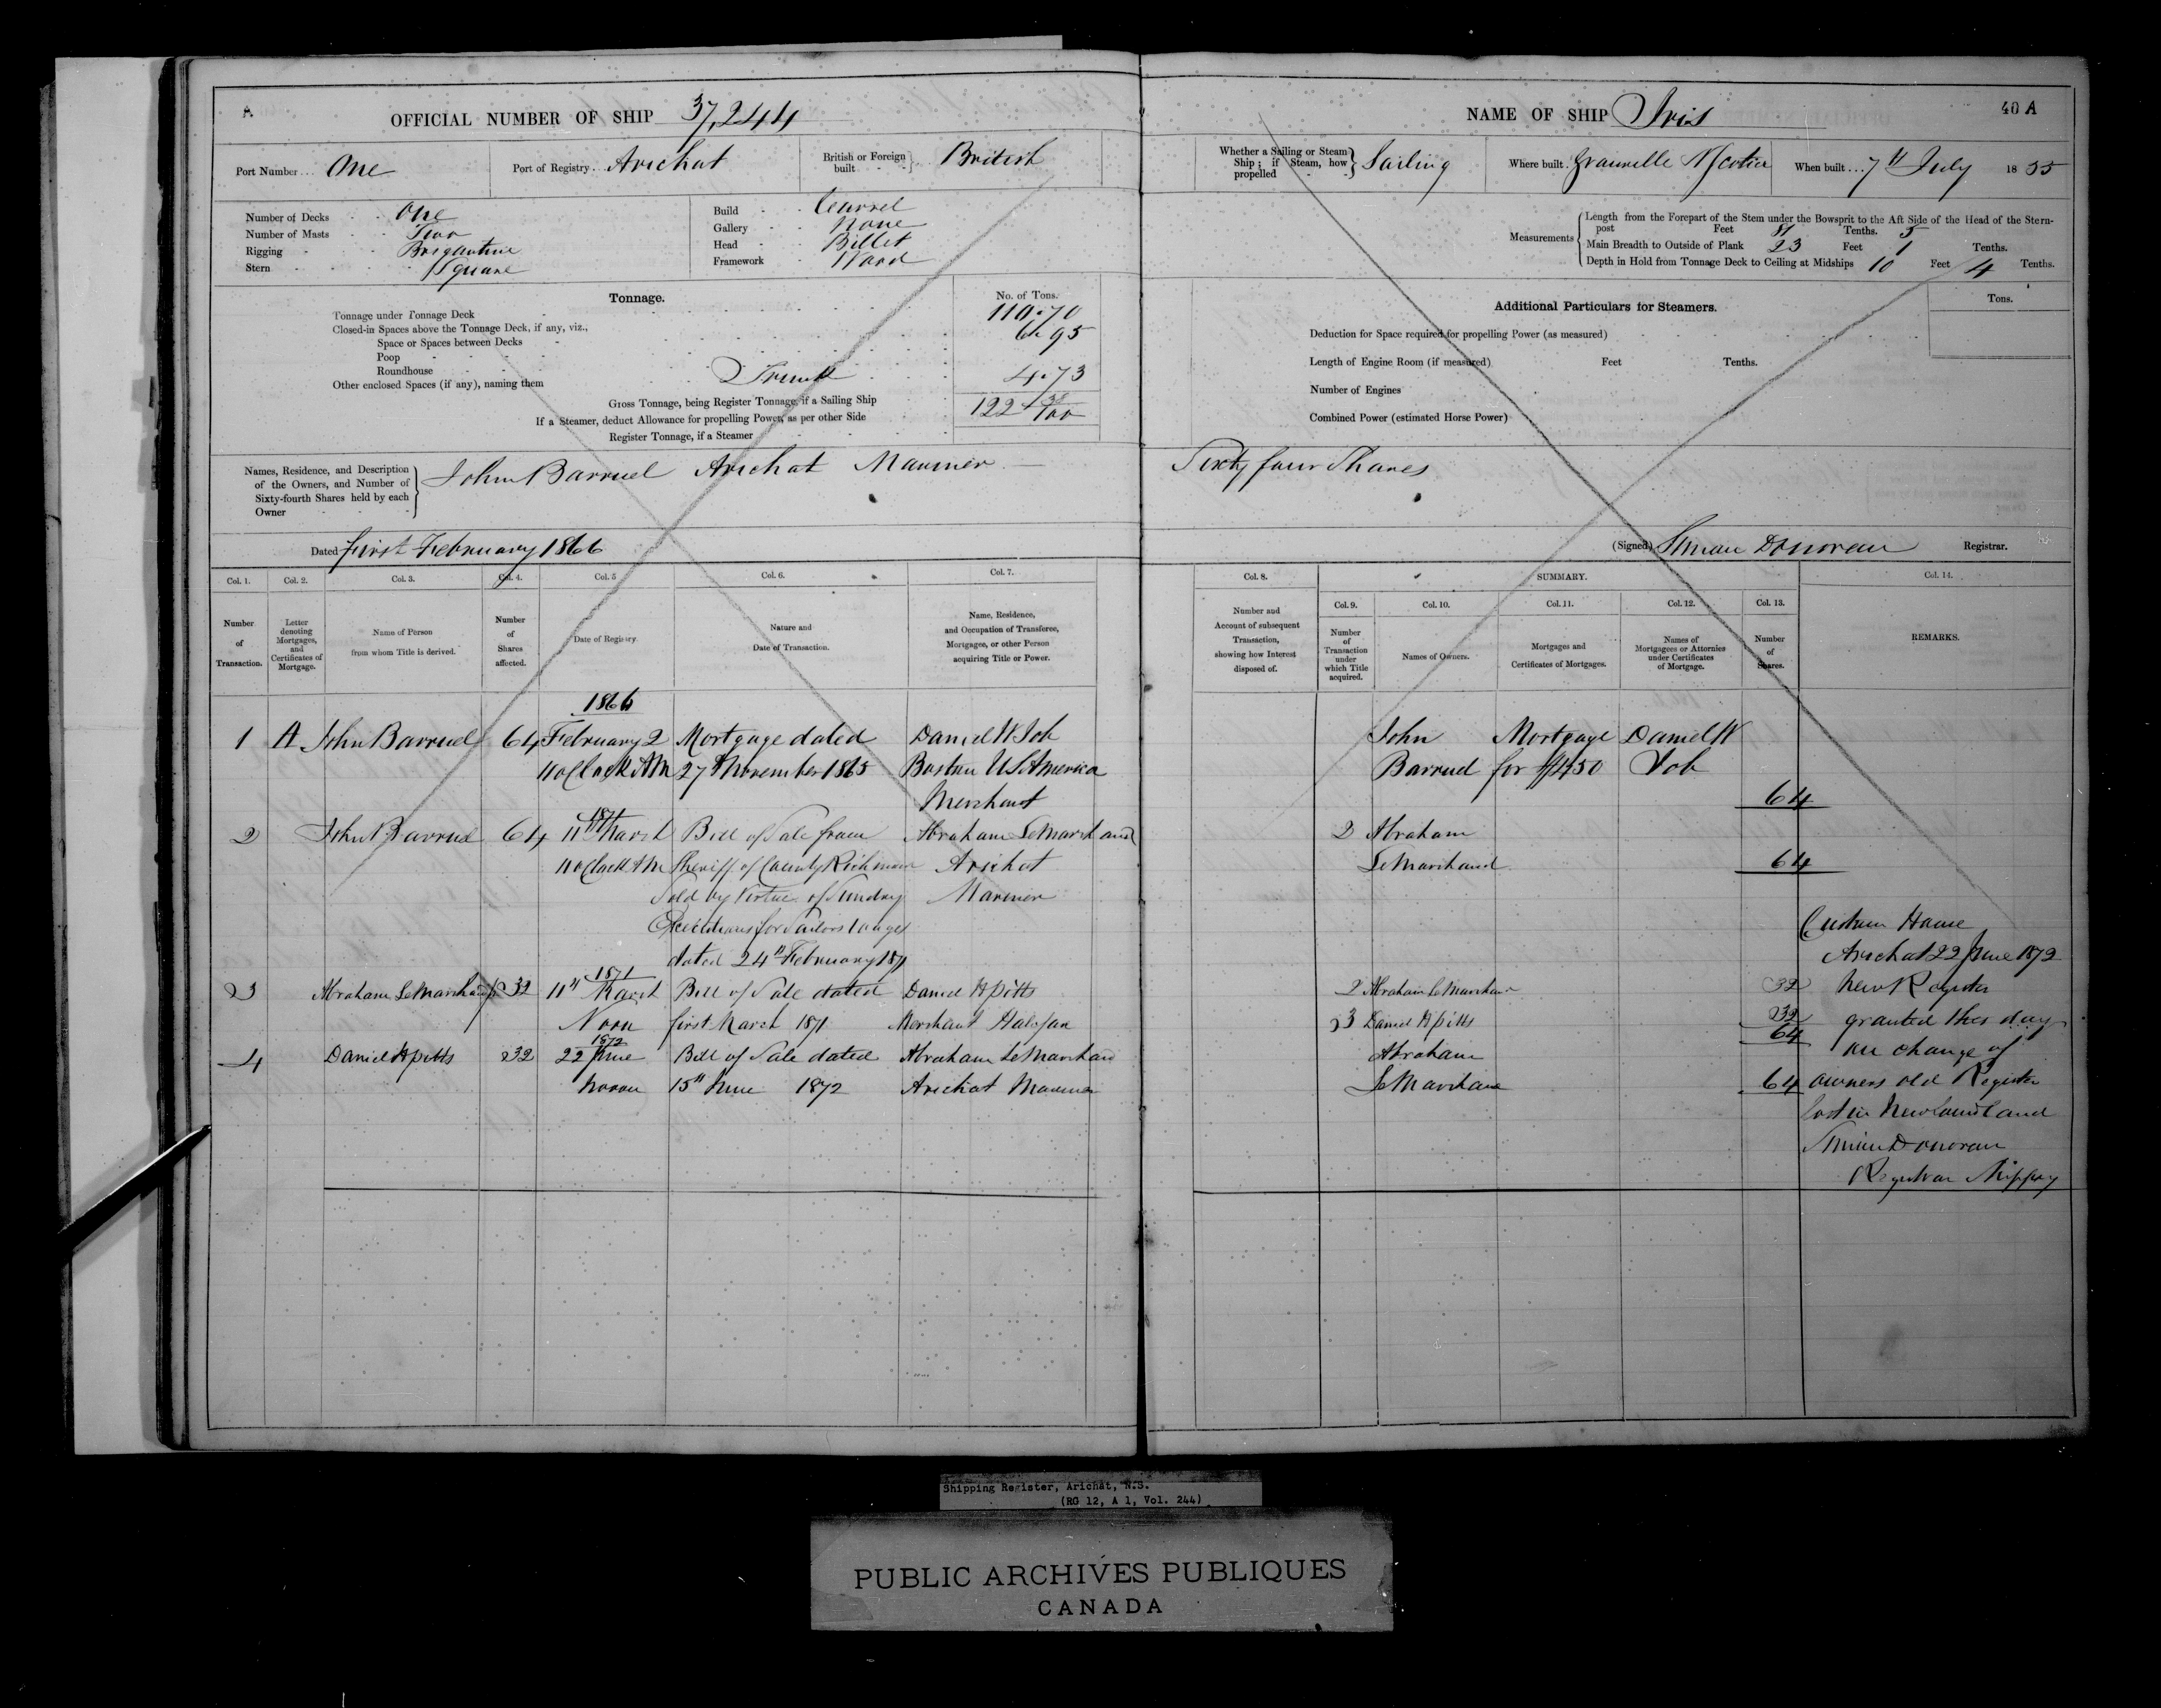 A
OFFICIAL NUMBER OF SHIP 37,244
Port Number One Port of Registry Arichat British or Foreign built British
Number of Decks One
Number of Masts Two
Rigging Brigantine
Stern Square
Build Carvel
Gallery None
Head Billet
Framework Wood
Tonnage. No. of Tons.
Tonnage under Tonnage Deck 110.70
Closed-in Spaces above the Tonnage Deck, if any, viz.,
Space or Spaces between Decks 6.95
Poop
Roundhouse
Other enclosed Spaces (if any), naming them Trunk 4.73
Gross Tonnage, being Register Tonnage, if a Sailing Ship 122 38/100
If a Steamer, deduct Allowance for propelling Power, as per other Side
Register Tonnage, if a Steamer
Names, Residence, and Description of the Owners, and Number of Sixty-fourth Shares held by each Owner
John Barrued Arichat Mariner
Dated first February 1866
NAME OF SHIP Iris 40 A
Whether a Sailing or Steam Ship; if Steam, how propelled Sailing Where built Granville N Scotia When built 7th July 1855
Measurements
Length from the Forepart of the Stem under the Bowsprit to the Aft Side of the Head of the Stern-
post Feet 81 Tenths. 5
Main Breadth to Outside of Plank 23 Feet 1 Tenths.
Depth in Hold from Tonnage Deck to Ceiling at Midships 10 Feet 4 Tenths.
Additional Particulars for Steamers. Tons.
Deduction for Space required for propelling Power (as measured)
Length of Engine Room (if measured) Feet Tenths.
Number of Engines
Combined Power (estimated Horse Power)
Sixty four Shares
(Signed) Simon Donovan Registrar.
Col. 1. Col. 2. Col. 3. Col. 4. Col. 5 Col. 6. Col. 7.
Number of Transaction.
Letter denoting Mortgages, and Certificates of Mortgage.
Name of Person from whom Title is derived.
Number of Shares affected.
Date of Registry.
Nature and Date of Transaction.
Name, Residence, and Occupation of Transferee, Mortgagee, or other Person acquiring Title or Power.
1866
1 A John Barrued 64 February 2 Mortgage dated Daniel W Job
11 oClock AM 27th November 1865 Boston U S America
Merchant
1871
2 John Barrued 64 11th March Bill of Sale from Abraham LeMarchand
11 oClock AM Sheriff of County Richmond Arichat
Sold by Virtue of Sundry Mariner
Executions for Sailors Wages
dated 24th February 1871
1871
3 Abraham LeMarchand 32 11" March Bill of Sale dated Daniel H Pitts
Noon first March 1871 Merchant Halifax
1872
4 Daniel H Pitts 32 22 June Bill of Sale dated Abraham LeMarchand
Noon 15" June 1872 Arichat Mariner
Col. 8. SUMMARY. Col. 14.
Col. 9. Col. 10. Col. 11. Col. 12. Col. 13.
Number and Account of subsequent Transaction, showing how Interest disposed of.
Number of Transaction under which Title acquired.
Names of Owners.
Mortgages and Certificates of Mortgages.
Names of Mortgagees or Attornies under Certificates of Mortgage.
Number of Shares.
REMARKS.
John Mortgage Daniel W
Barrued for $1450 Job
64
2 Abraham
LeMarchand 64
2 Abraham LeMarchand 32
3 Daniel H Pitts 32
64
Abraham
LeMarchand 64
Custom House
Arichat 22 June 1872
New Register
granted this day
on change of
owners old Register
lost in Newfoundland
Simon Donovan
Registrar Shipping
Shipping Register, Arichat, N.S.
(RG 12, A 1, Vol. 244)
PUBLIC ARCHIVES PUBLIQUES
CANADA